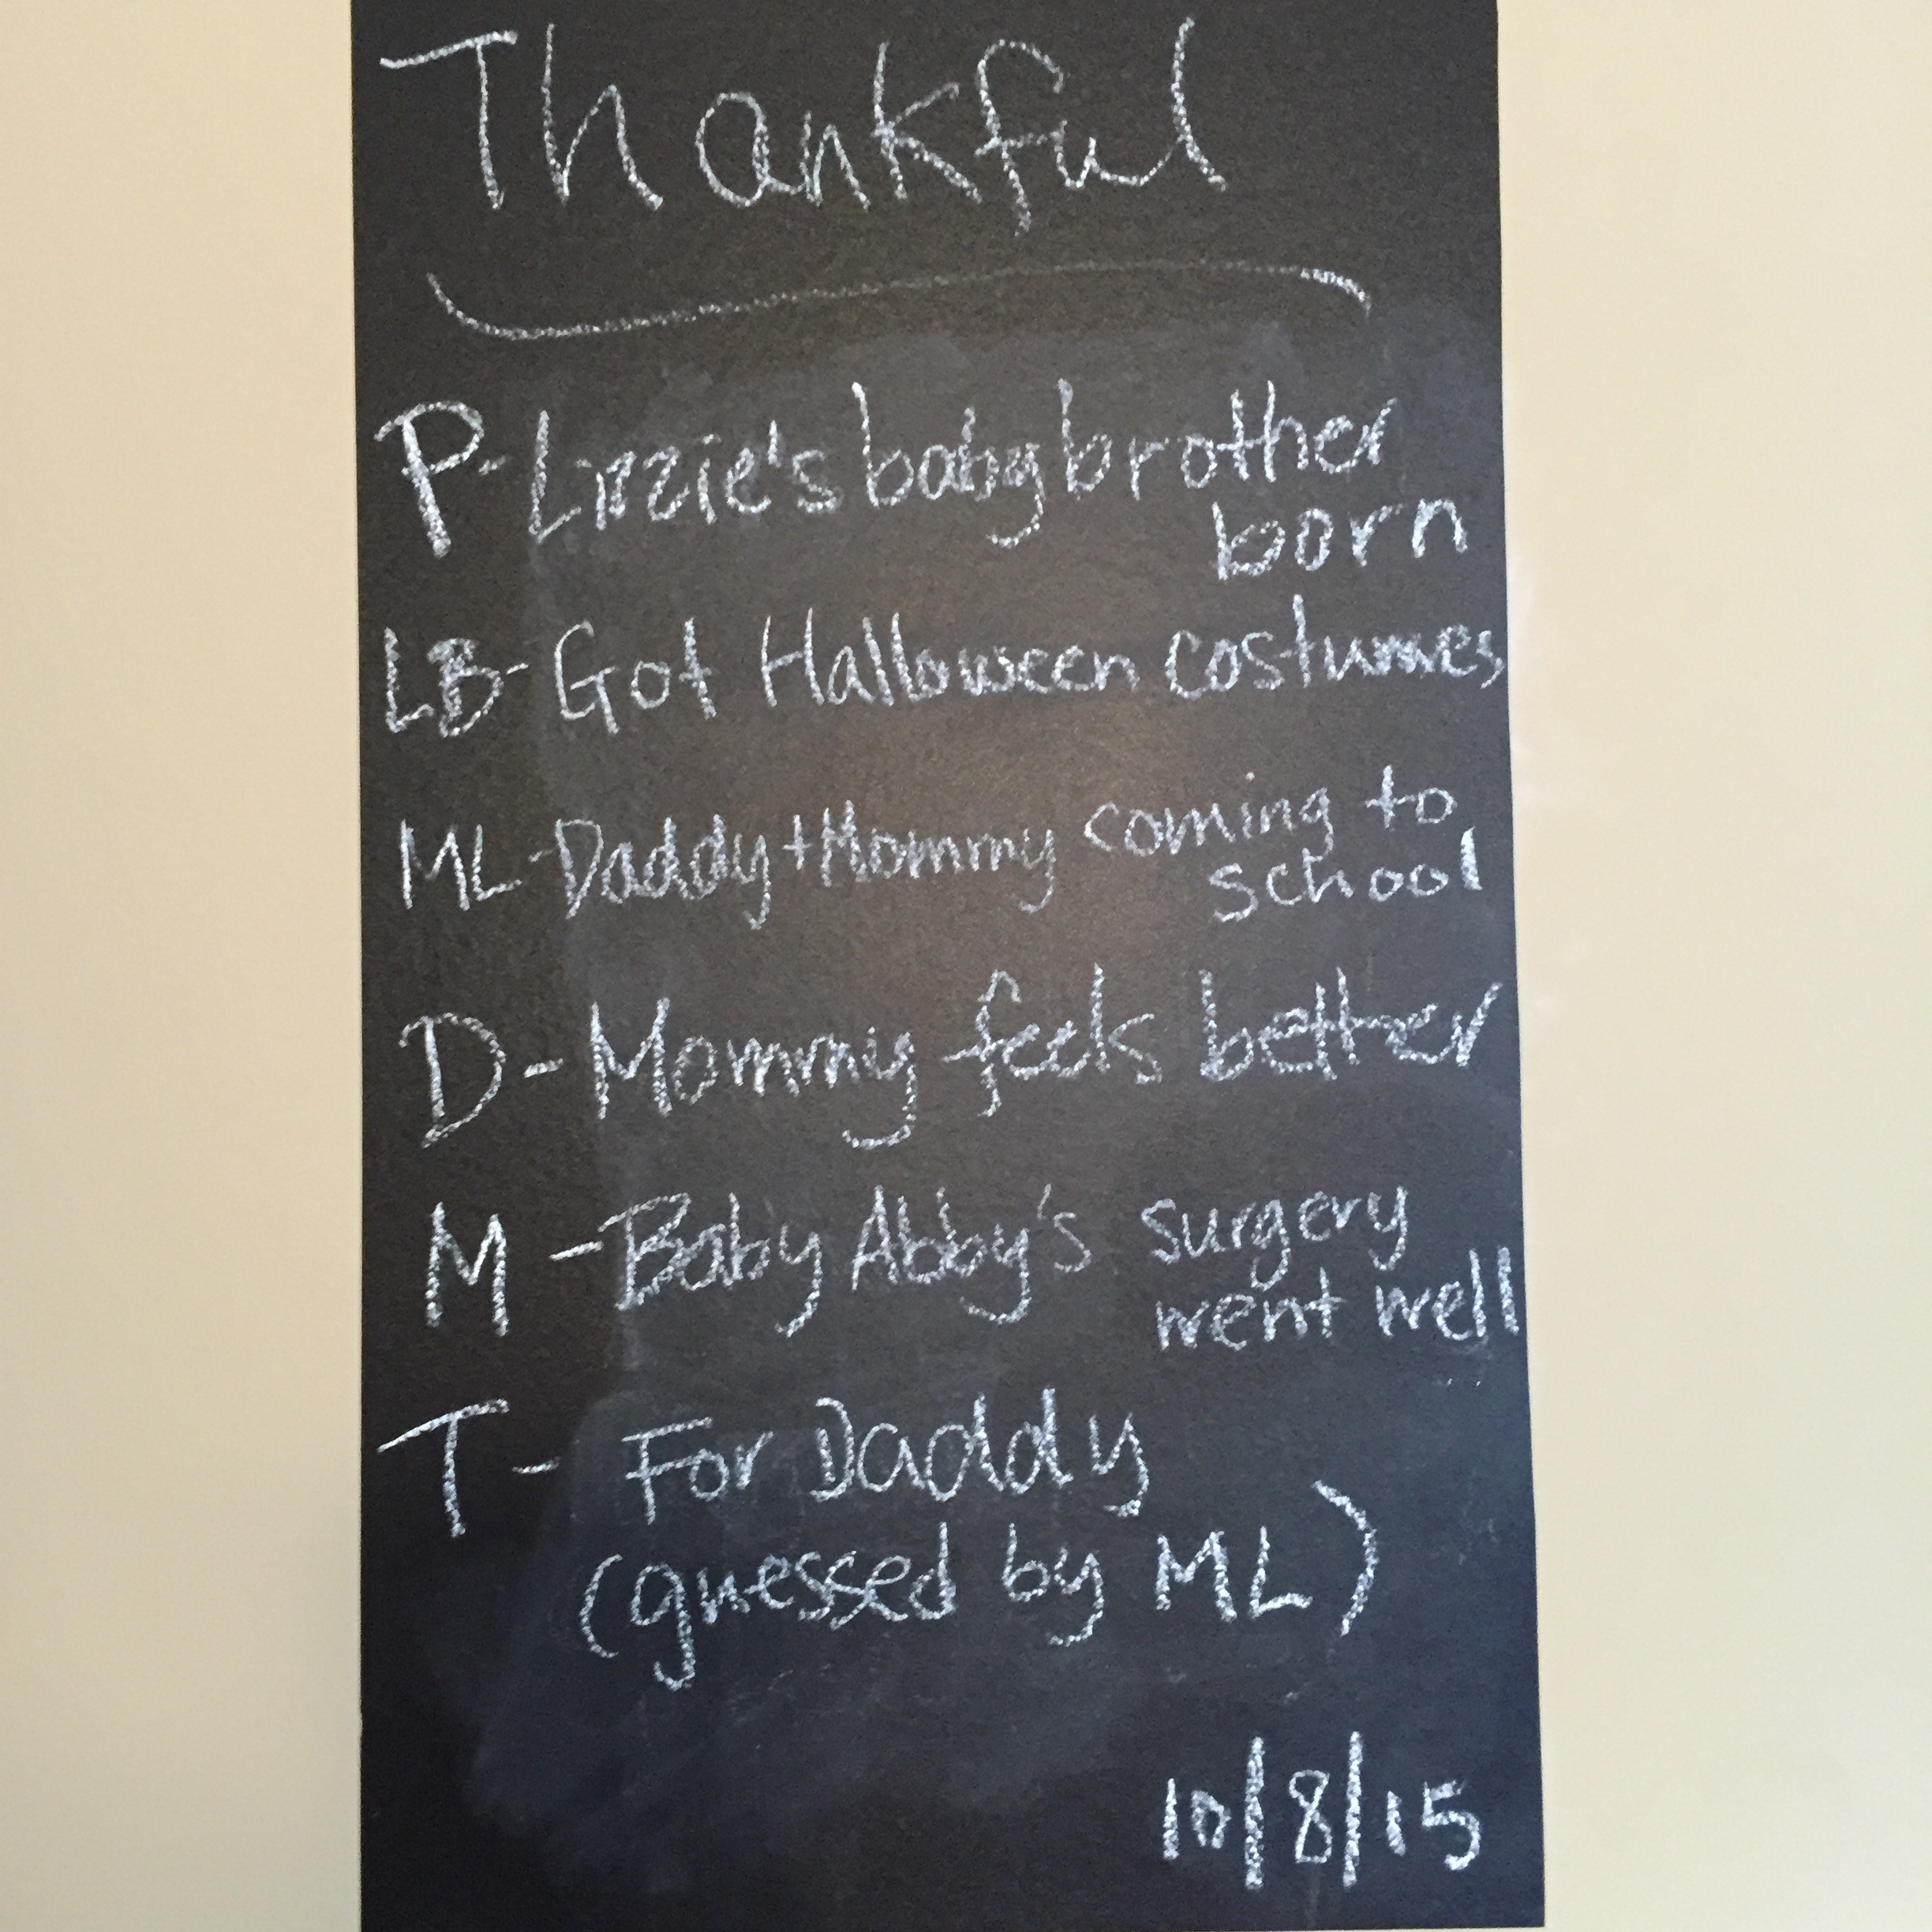 Thankful
P-Lizzie's baby brother
born
LB-Got Halloween costumes
ML-Daddy+Mommy coming to
school
D-Mommy feels better
M-Baby Abby's surgery
went well
T- For Daddy
(guessed by ML)
10/8/15